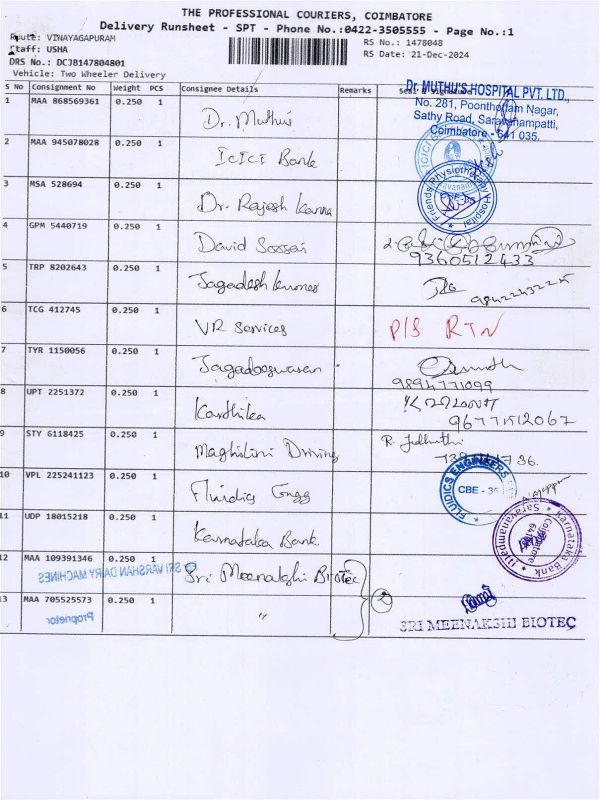 THE PROFESSIONAL COURIERS, COIMBATORE
Delivery Runsheet - SPT - Phone No.:0422-3505555 - Page No.:1
Route: VINAYAGAPURAM
RS No.: 1478048
Staff: USHA
RS Date: 21-Dec-2024
DRS No.: DCJB147804801
Vehicle: Two Wheeler Delivery
S No Consignment No Weight PCS Consignee Details Remarks
Dr. MUTHU'S HOSPITAL PVT. LTD.,
No. 281, Poonthottam Nagar,
Sathy Road, Saravanampatti,
Coimbatore - 641 035.
1 MAA 868569361 0.250 1 Dr. Muthus
2 MAA 945078028 0.250 1 ICICI Bank
3 MSA 528694 0.250 1 Dr. Rajesh Kanna
Friends Physiotherapy Hospital
4 GPM 5440719 0.250 1 David
9360512433
5 TRP 8202643 0.250 1 Jagadesh
6 TCG 412745 0.250 1 VR Services P/S RTN
7 TYR 1150056 0.250 1 Jagadeeswaran
9894771099
8 UPT 2251372 0.250 1 Karthika
9 STY 6118425 0.250 1 Maghilini Driving R.
10 VPL 225241123 0.250 1 Fluidics Engg
FLUIDICS ENGINEERS
CBE - 35
11 UDP 18015218 0.250 1 Karnataka Bank
Karnataka Bank
Saravanampatti
Coimbatore
12 MAA 109391346 0.250 1 Sri Meenakshi Biotec
SRI VARSHAN DAIRY MACHINES
13 MAA 705525573 0.250 1 " 2
Proprietor
SRI MEENAKSHI BIOTEC